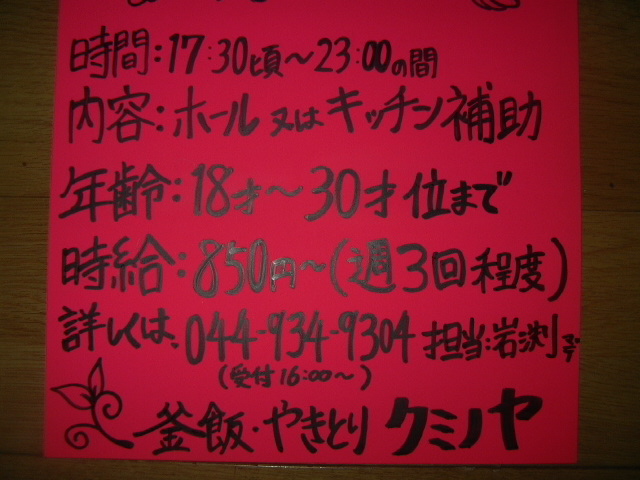 時間:17:30頃〜23:00の間
内容:ホール又はキッチン補助
年齢:18才〜30才位まで
時給:850円〜(週3回程度)
詳しくは、044-934-9304 担当:岩渕まで
(受付16:00〜)
釜飯・やきとり クミノヤ